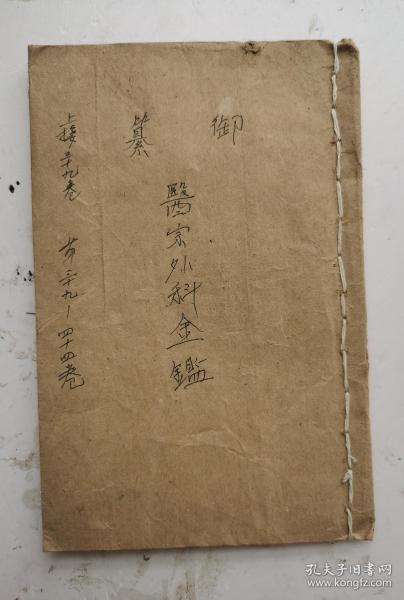 御
纂
醫宗外科金鑑
上接三十九卷 节三十九-四十四卷
孔夫子旧书网
www.kongfz.com